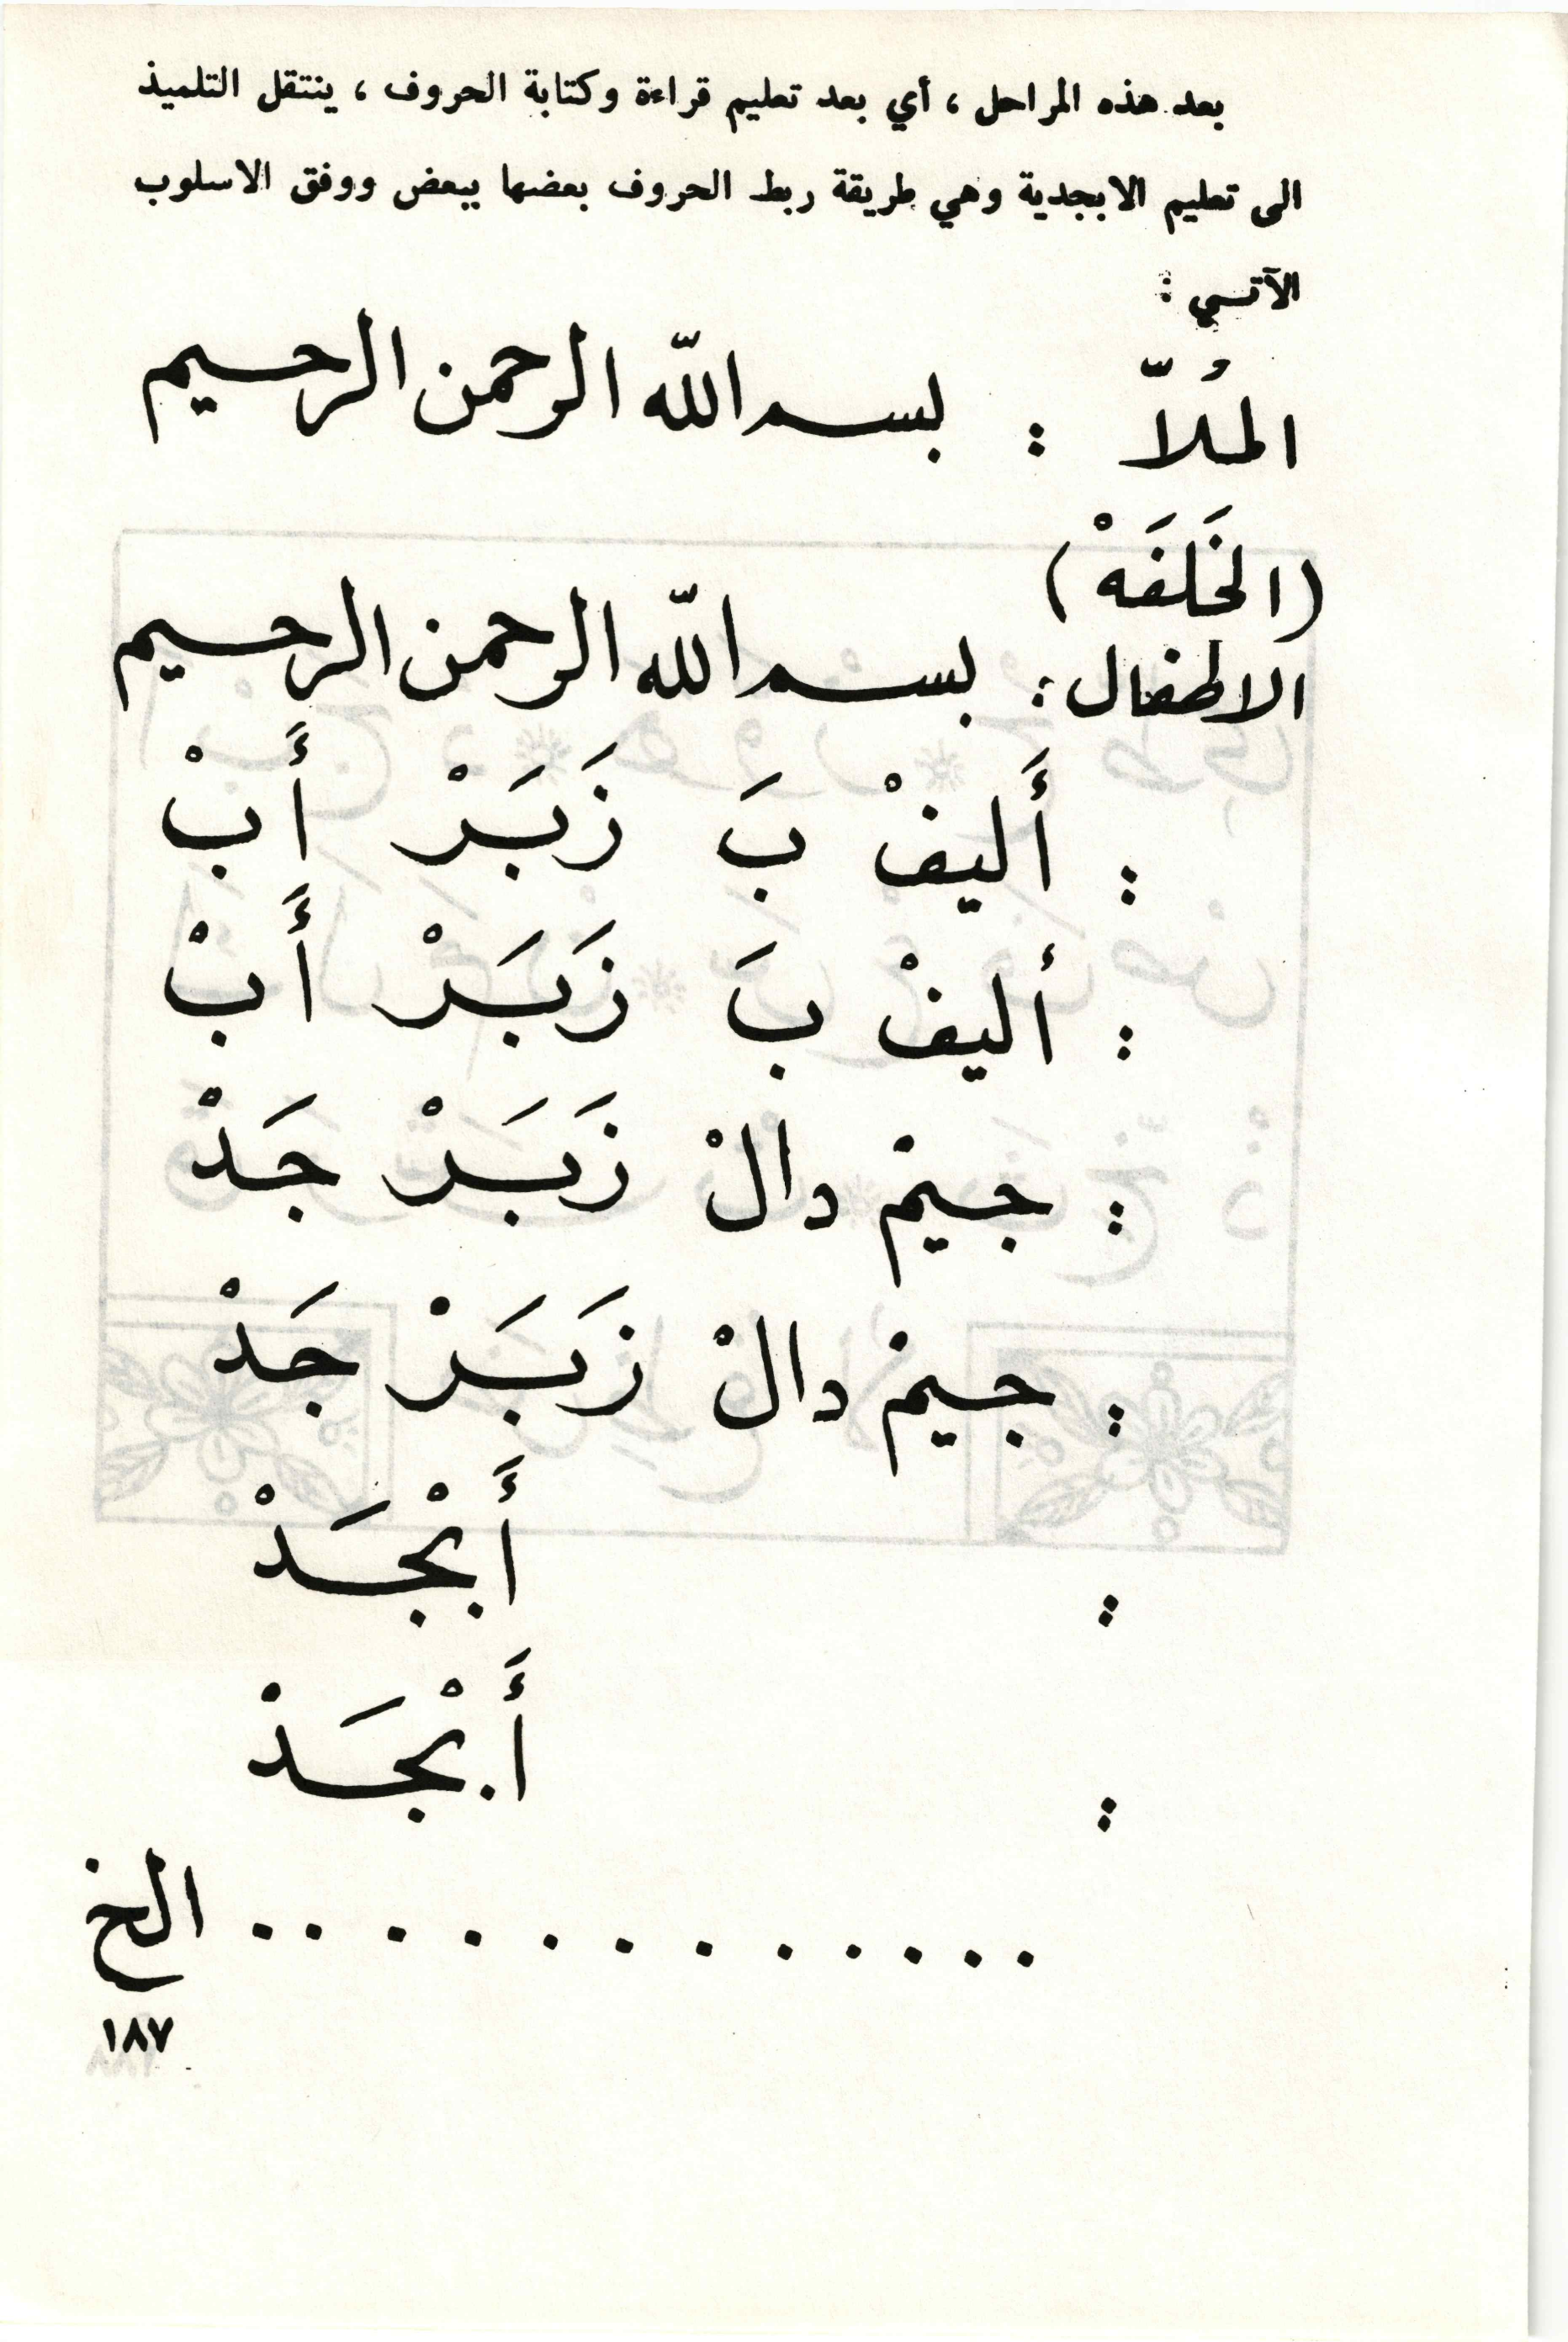 بعد هذه المراحل ، أي بعد تعليم قراءة وكتابة الحروف ، ينتقل التلميذ
الى تعليم الابجدية وهي طريقة ربط الحروف بعضها ببعض ووفق الاسلوب
الآتي :
المُلاّ : بسم اللّه الرحمن الرحيم
(الخَلفَهْ)
الاطفال : بسم اللّه الرحمن الرحيم
: أَليفْ بَ زَبَرْ أَبْ
: أليفْ بَ زَبَرْ أَبْ
: جيمْ دالْ زَبَرْ جَدْ
: جيمْ دالْ زَبَرْ جَدْ
: أَبْجَدْ
: أَبْجَدْ
. . . . . . . . . . . . . الخ
١٨٧